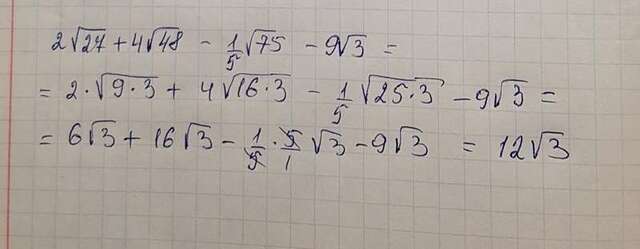 2√27 + 4√48 - 1/5 √75 - 9√3 =
= 2·√9·3 + 4√16·3 - 1/5 √25·3 - 9√3 =
= 6√3 + 16√3 - 1/5 · 5/1 √3 - 9√3 = 12√3